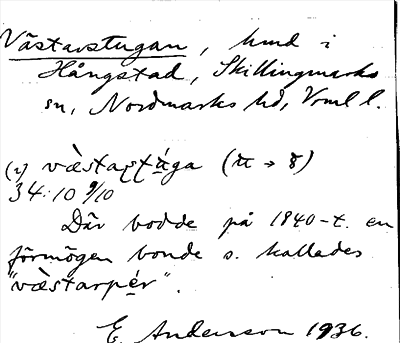 Västarstugan, hmd i
Hångstad, Skillingmarks
sn, Nordmarks hd, Vrml l.
(2) væ̀staʂʈúga
34:10 9/10
Där bodde på 1840-t. en
förmögen bonde s. kallades
"væ̀starpér".
E. Andersson 1936.